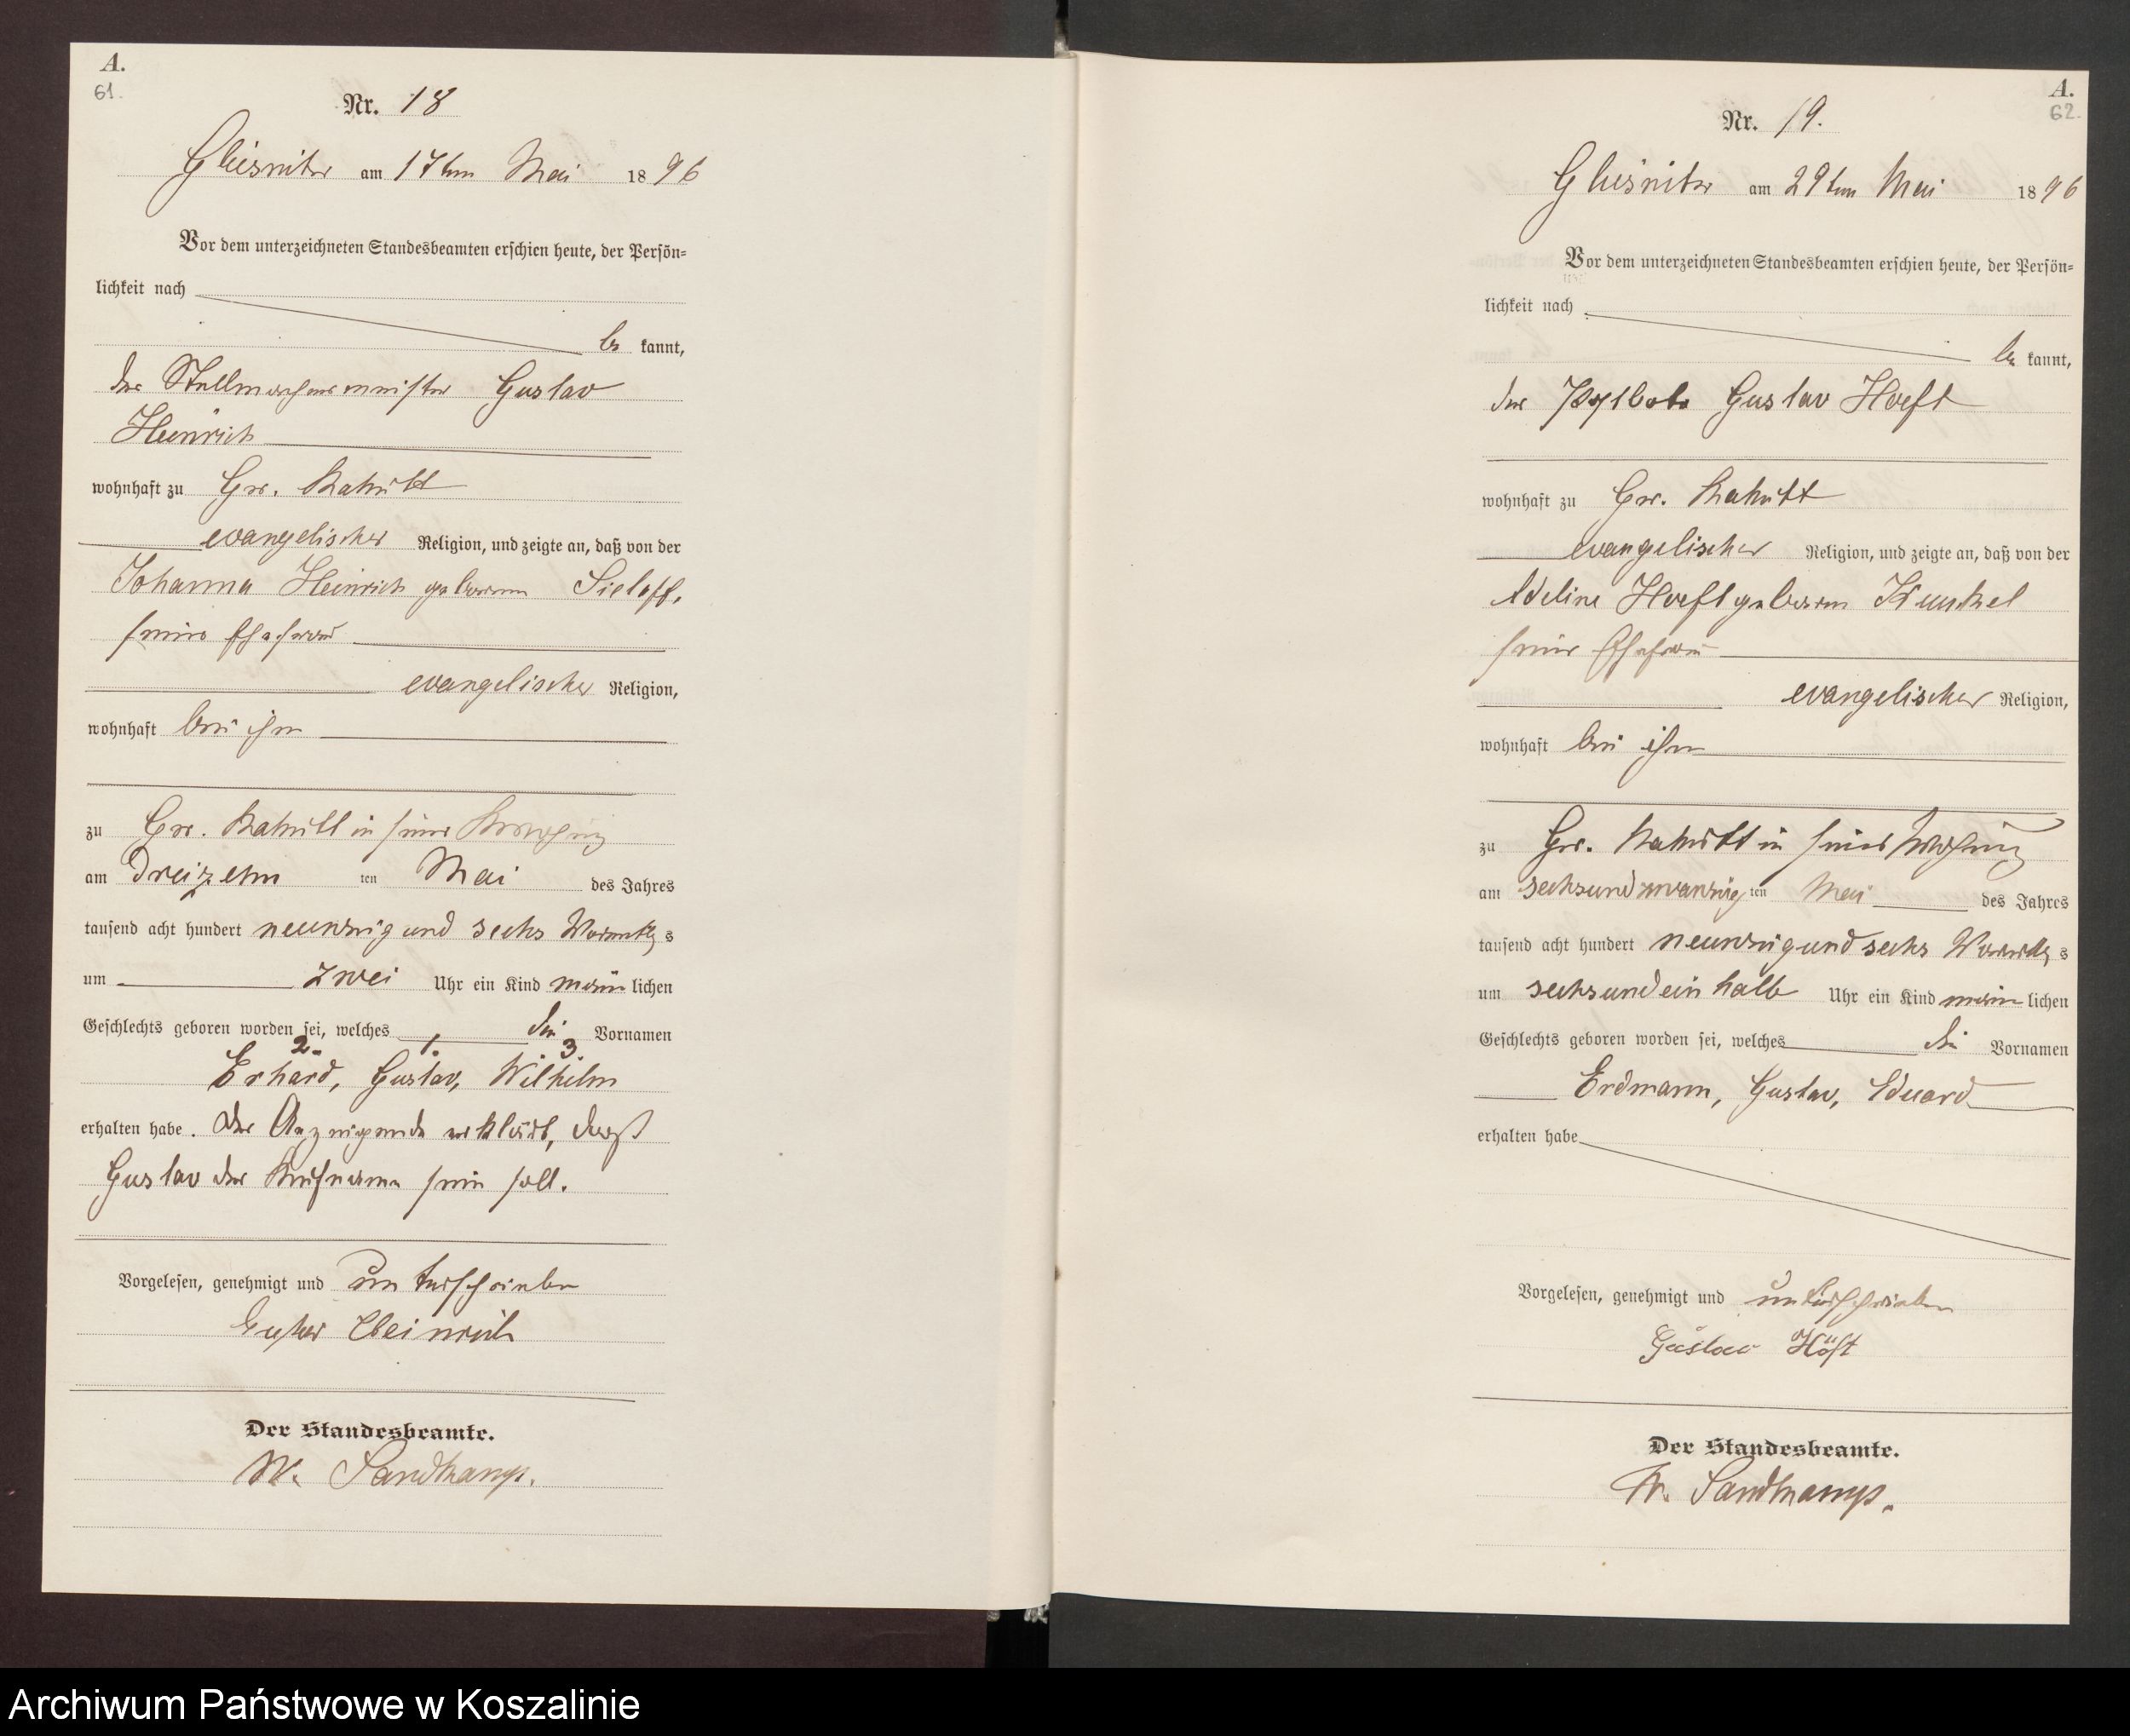 A.
61.
Nr. 18
Gliesnitz am 17ten Mai 1896
Vor dem unterzeichneten Standesbeamten erschien heute, der Persön-
lichkeit nach
be kannt,
der Stellmachermeister Gustav
Heinrich
wohnhaft zu Gr. Rakitt
evangelischer Religion, und zeigte an, daß von der
Johanna Heinrich geborenen Sieloff,
seine Ehefrau
evangelischer Religion,
wohnhaft bei ihm
zu Gr. Rakitt in seiner Wohnung
am dreizehn ten Mai des Jahres
tausend acht hundert neunzig und sechs Vormittags
um zwei Uhr ein Kind männlichen
Geschlechts geboren worden sei, welches die Vornamen
2. 1. 3.
Erhard, Gustav, Wilhelm
erhalten habe. Der Anzeigende erklärt, daß
Gustav der Rufname sein soll.
Vorgelesen, genehmigt und unterschrieben
Gustav Heinrich
Der Standesbeamte.
W. Sandkamp.
A.
62.
Nr. 19.
Gliesnitz am 29ten Mai 1896
Vor dem unterzeichneten Standesbeamten erschien heute, der Persön-
lichkeit nach
be kannt,
der Gustav Hoeft
wohnhaft zu Gr. Rakitt
evangelischer Religion, und zeigte an, daß von der
Adeline Hoeft geboren Kunkel
seine Ehefrau
evangelischer Religion,
wohnhaft bei ihm
zu Gr. Rakitt in seiner Wohnung
am sechsundzwanzig ten Mai des Jahres
tausend acht hundert neunzig und sechs Vormittags
um sechsundeinhalb Uhr ein Kind männlichen
Geschlechts geboren worden sei, welches die Vornamen
Erdmann, Gustav, Eduard
erhalten habe
Vorgelesen, genehmigt und unterschrieben
Gustav Höft
Der Standesbeamte.
W. Sandkamp.
Archiwum Państwowe w Koszalinie